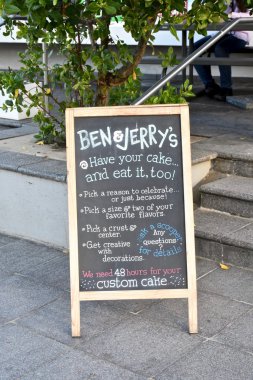 BEN & JERRY'S
Have your cake...
and eat it, too!
Pick a reason to celebrate...
or just because!
Pick a size & two of your
favorite flavors.
Pick a crust &
center.
Get creative
with
decorations.
Ask a scooper
Any
questions?
for details
We need 48 hours for your
custom cake